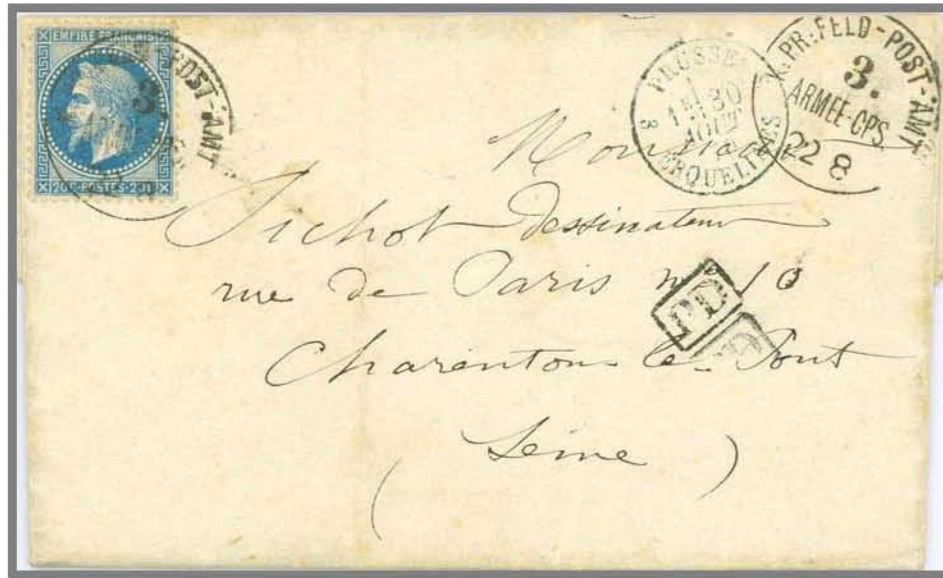 EMPIRE FRANÇAIS
20C·POSTES·20C
POST-AMT
3.
PRUSSE
30
AOUT
ERQUELINES
3
K.PR:FELD-POST-AMT
3.
ARMEE-CPS.
22 8
Monsieur
Pichot dessinateur
rue de Paris no 10
PD
PD
Charenton le Pont
(Seine)